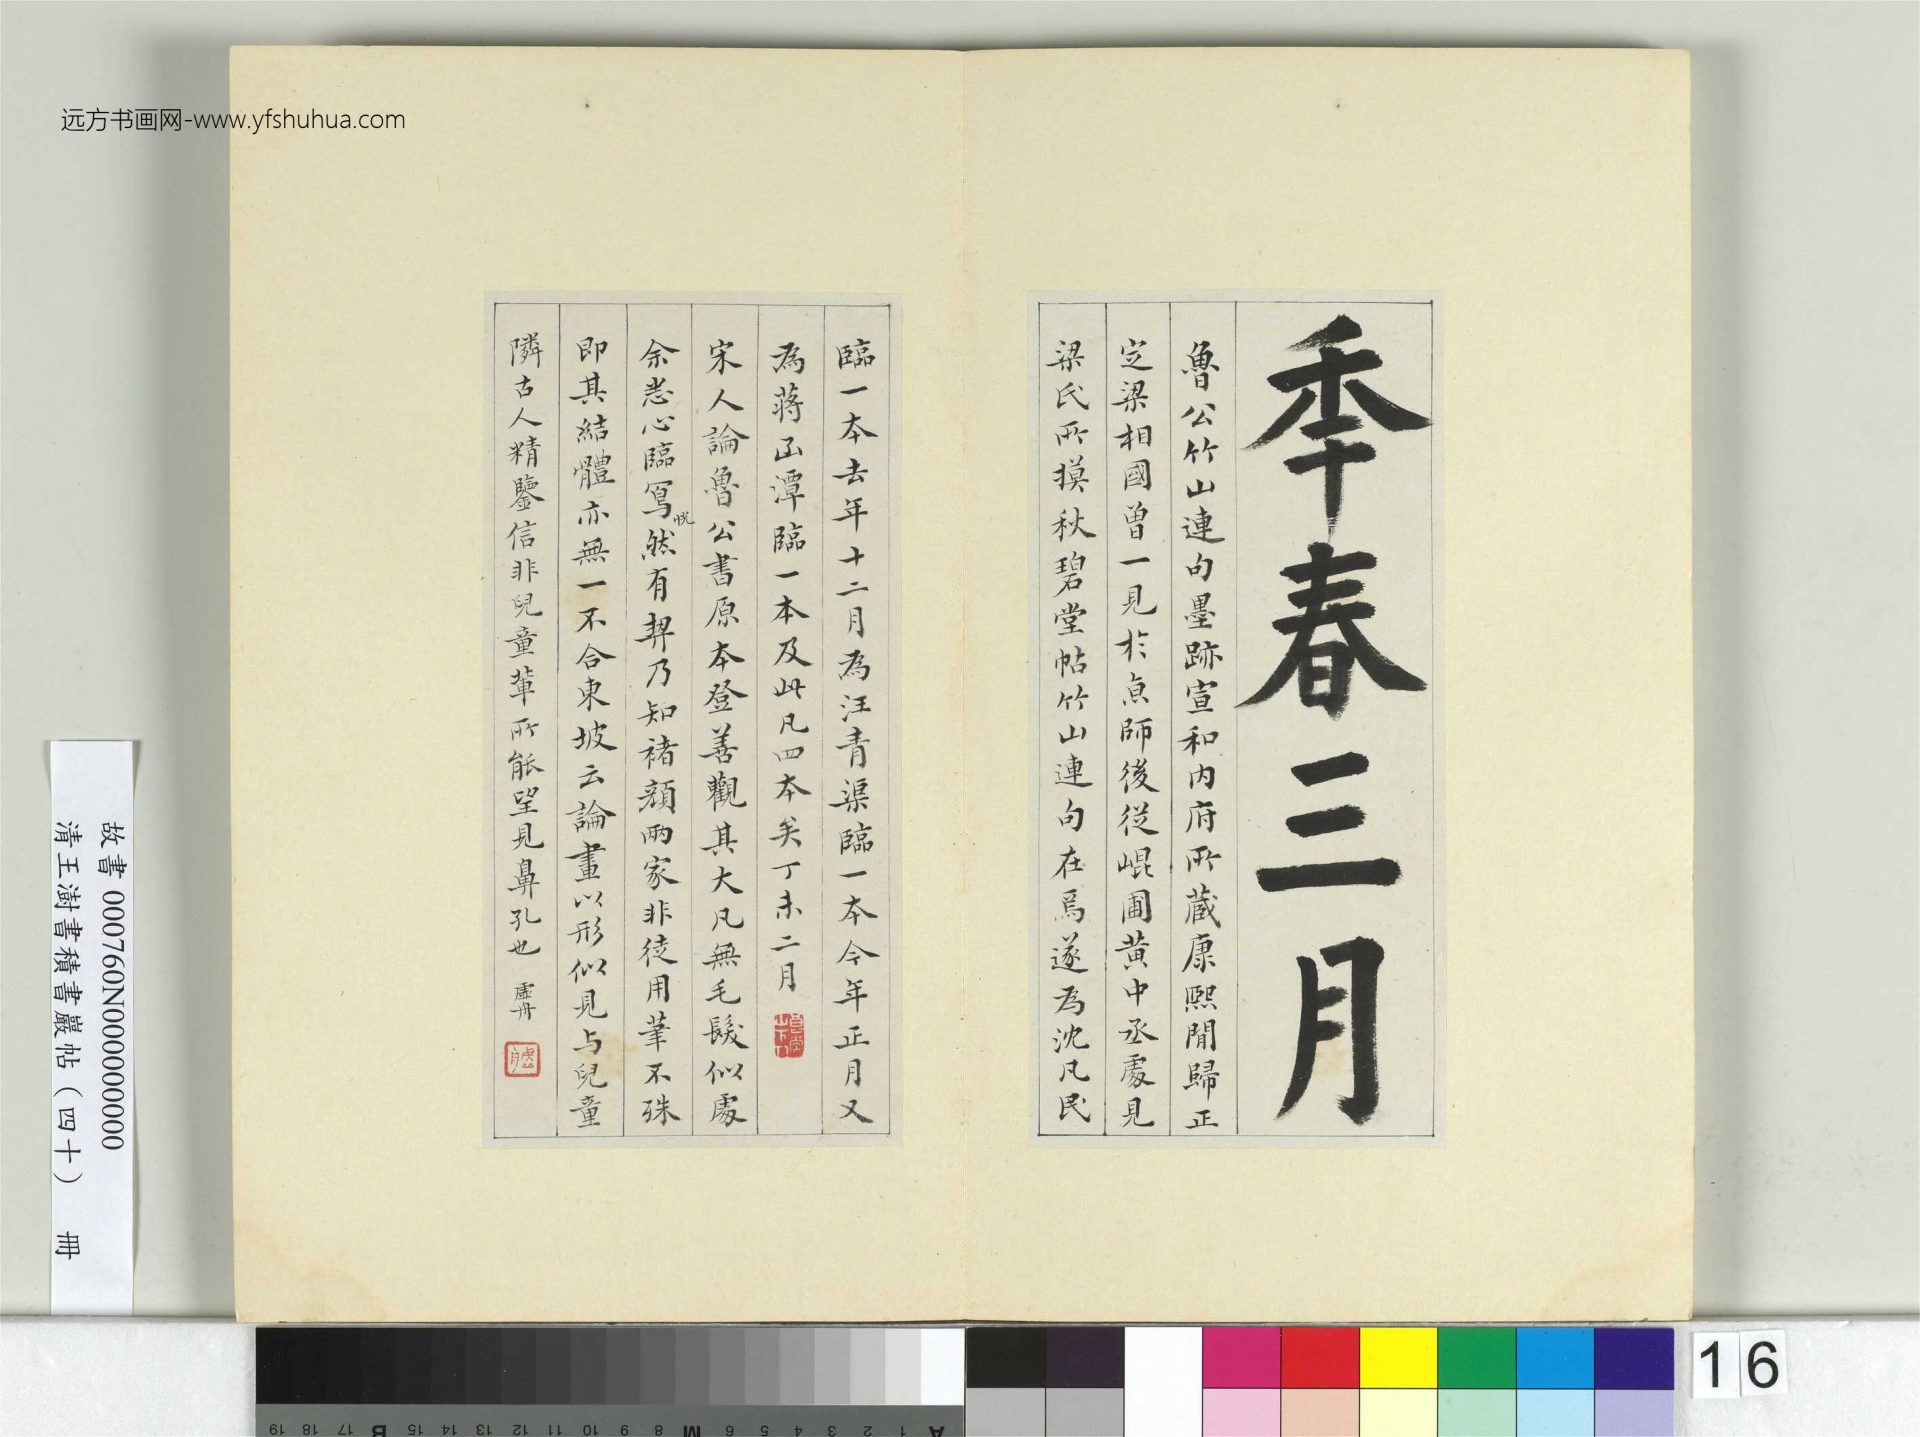 远方书画网-www.yfshuhua.com
季春三月
魯公竹山連句墨跡宣和内府所藏康熙間歸正
定梁相國曾一見於京師後從崐圃黃中丞處見
梁氏所摸秋碧堂帖竹山連句在焉遂為沈凡民
臨一本去年十二月為汪青渠臨一本今年正月又
為蔣函潭臨一本及此凡四本矣丁未二月
宋人論魯公書原本登善觀其大凡無毛髮似處
余悉心臨寫恍然有契乃知褚顏兩家非徒用筆不殊
即其結體亦無一不合東坡云論畫以形似見与兒童
隣古人精鑒信非兒童輩所能望見鼻孔也 虛舟
故書 000760N000000000
清王澍書積書巖帖(四十) 冊
16
19 18 17 B 15 14 13 12 11 10 9 8 M 6 5 4 3 2 1 A